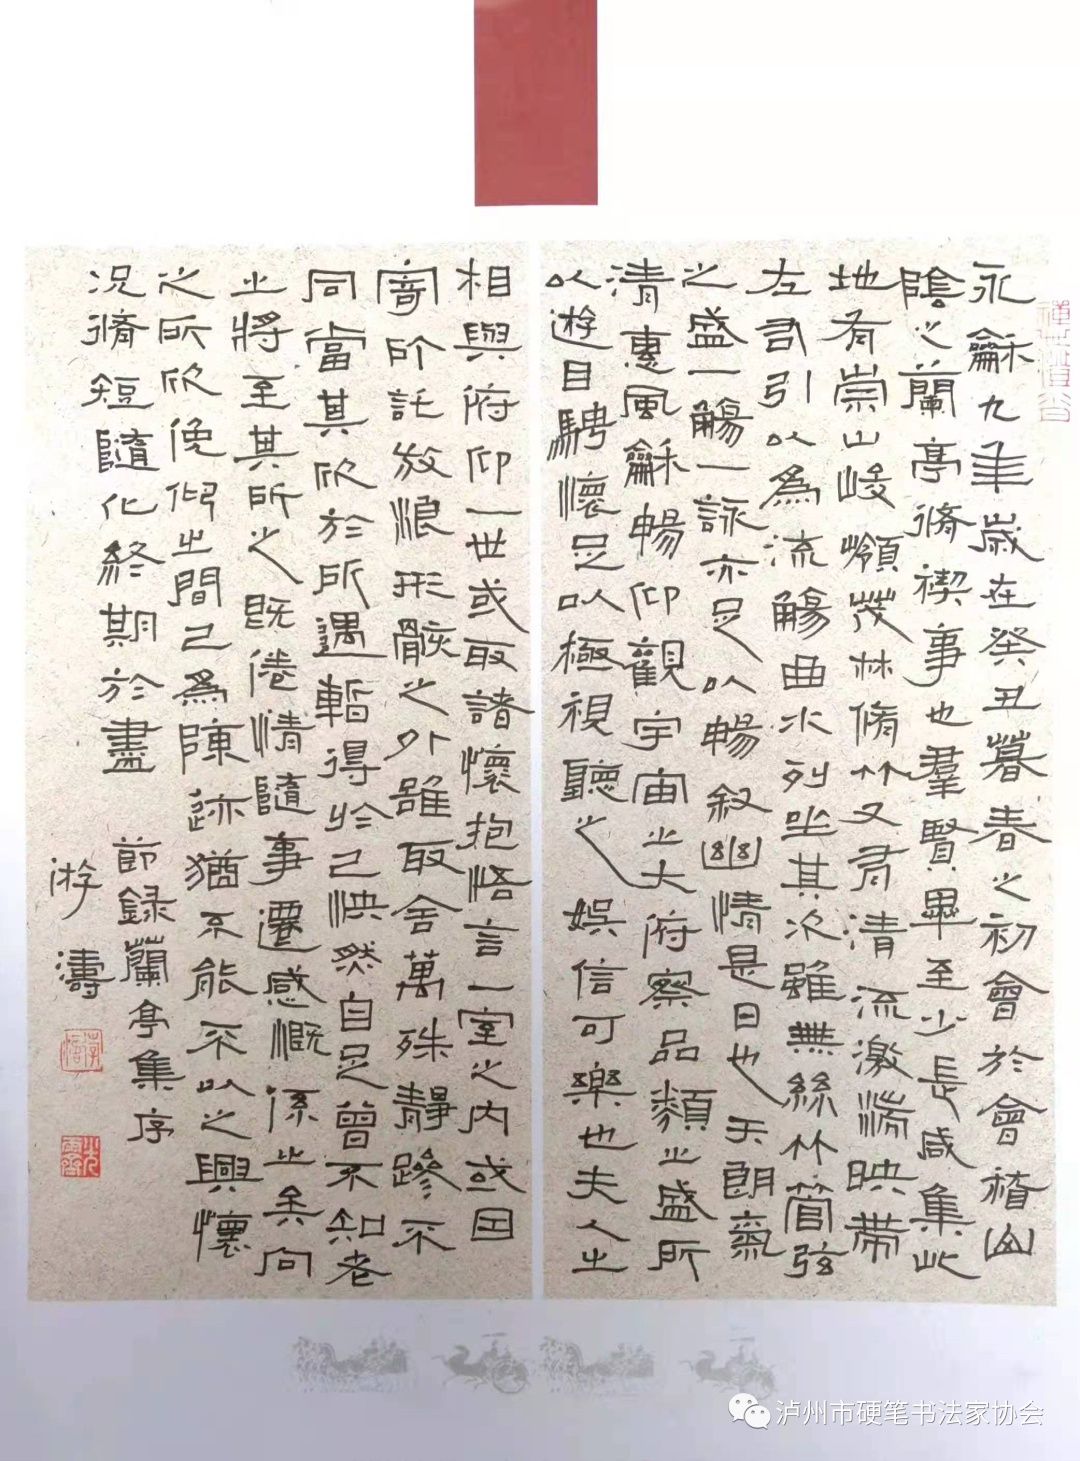 永龢九年歲在癸丑暮春之初會於會稽山
陰之蘭亭脩禊事也羣賢畢至少長咸集此
地有崇山峻嶺茂林脩竹又有清流激湍映帶
左右引以為流觴曲水列坐其次雖無絲竹管弦
之盛一觴一詠亦足以暢敘幽情是日也天朗氣
清惠風龢暢仰觀宇宙之大府察品類之盛所
以遊目騁懷足以極視聽之娛信可樂也夫人之
相與府仰一世或取諸懷抱悟言一室之內或因
寄所託放浪形骸之外雖取舍萬殊靜躁不
同當其欣於所遇暫得於己怏然自足曾不知老
之將至其所之既倦情隨事遷感慨係之矣向
之所欣俛仰之間已為陳迹猶不能不以之興懷
況脩短隨化終期於盡
節錄蘭亭集序
游濤
泸州市硬笔书法家协会